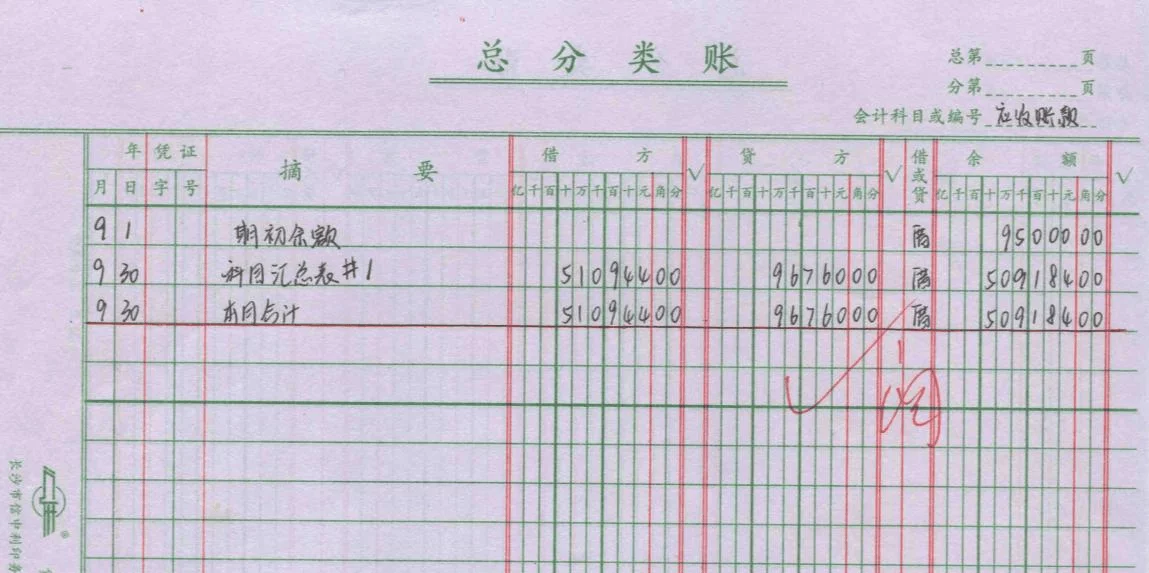 总分类账
总第 页
分第 页
会计科目或编号 应收账款
年 凭证 摘要 借方 √ 贷方 √ 借或贷 余额 √
月 日 字 号 亿千百十万千百十元角分 亿千百十万千百十元角分 亿千百十万千百十元角分
9 1 期初余额 9500000
9 30 科目汇总表#1 51094400 9676000 50918400
9 30 本月合计 51094400 9676000 50918400
长沙市信中利印务